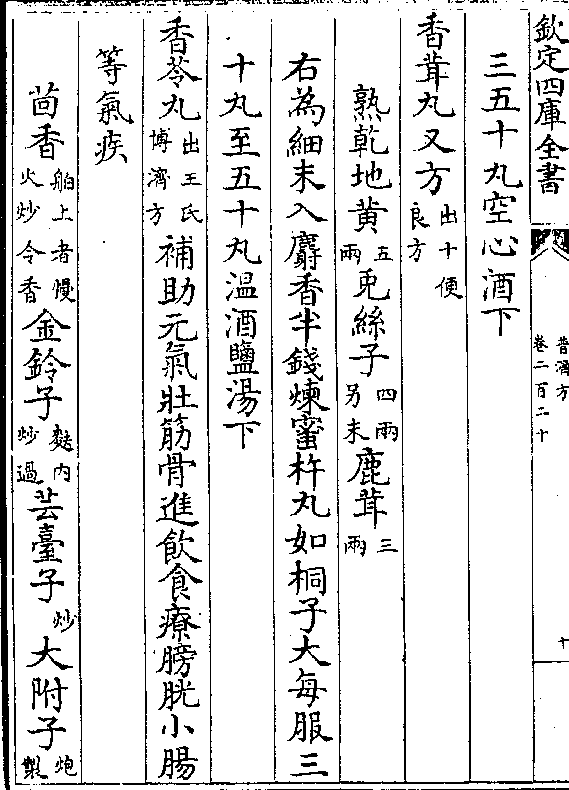 欽定四庫全書
普濟方
卷二百二十
十
三五十丸空心酒下
香茸丸又方出十便良方
熟乾地黄五兩兎絲子四兩另末鹿茸三兩
右為細末入麝香半錢煉蜜杵丸如桐子大每服三
十丸至五十丸温酒鹽湯下
香苓丸出王氏博濟方補助元氣壯筋骨進飲食療膀胱小腸
等氣疾
茴香舶上者慢火炒令香金鈴子麩内炒過芸臺子炒大附子炮製